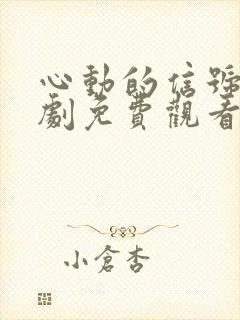 心動的信號
劇免費觀看
小倉杏